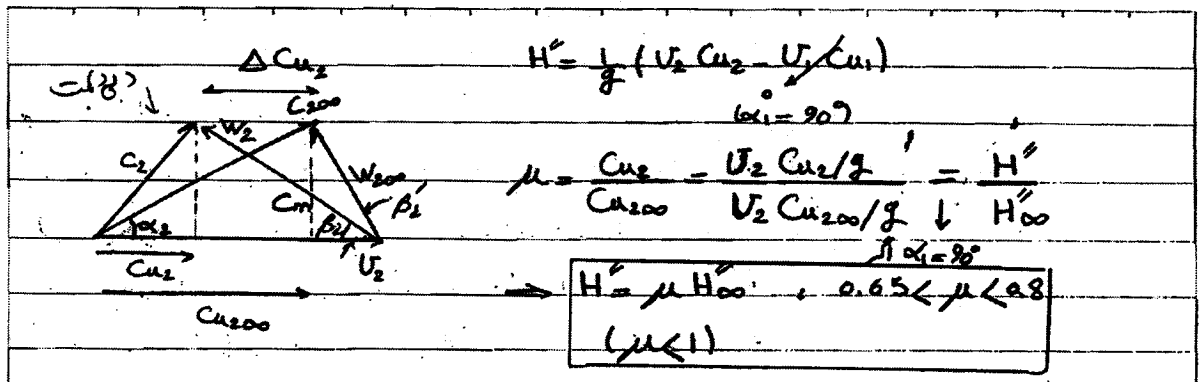 ΔCu₂
C₂∞
C₂
W₂
W₂∞
Cm
β₂'
α₂
β₂
U₂
Cu₂
Cu₂∞
H" = 1/g (U₂ Cu₂ - U₁ Cu₁)
0
(α₁ = 90°)
μ = Cu₂/Cu₂∞ = (U₂ Cu₂/g)/(U₂ Cu₂∞/g) = H"/H"∞
α₁ = 90°
⇒ H" = μ H"∞ , 0.65 < μ < 0.8
(μ < 1)